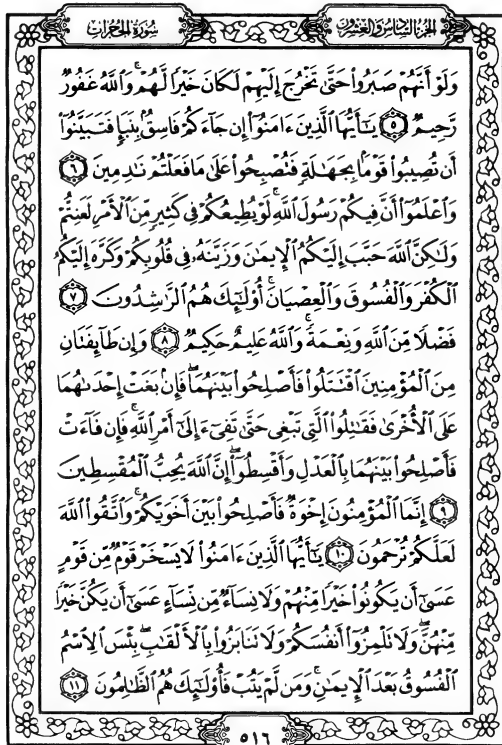 سُورَةُ الحُجُرَات
الجزء السادس والعشرون
وَلَوْ أَنَّهُمْ صَبَرُوا۟ حَتَّىٰ تَخْرُجَ إِلَيْهِمْ لَكَانَ خَيْرًا لَّهُمْ ۚ وَٱللَّهُ غَفُورٌ
رَّحِيمٌ ٥ يَـٰٓأَيُّهَا ٱلَّذِينَ ءَامَنُوٓا۟ إِن جَآءَكُمْ فَاسِقٌۢ بِنَبَإٍ فَتَبَيَّنُوٓا۟
أَن تُصِيبُوا۟ قَوْمًۢا بِجَهَـٰلَةٍ فَتُصْبِحُوا۟ عَلَىٰ مَا فَعَلْتُمْ نَـٰدِمِينَ ٦
وَٱعْلَمُوٓا۟ أَنَّ فِيكُمْ رَسُولَ ٱللَّهِ ۚ لَوْ يُطِيعُكُمْ فِى كَثِيرٍ مِّنَ ٱلْأَمْرِ لَعَنِتُّمْ
وَلَـٰكِنَّ ٱللَّهَ حَبَّبَ إِلَيْكُمُ ٱلْإِيمَـٰنَ وَزَيَّنَهُۥ فِى قُلُوبِكُمْ وَكَرَّهَ إِلَيْكُمُ
ٱلْكُفْرَ وَٱلْفُسُوقَ وَٱلْعِصْيَانَ ۚ أُو۟لَـٰٓئِكَ هُمُ ٱلرَّٰشِدُونَ ٧
فَضْلًا مِّنَ ٱللَّهِ وَنِعْمَةً ۚ وَٱللَّهُ عَلِيمٌ حَكِيمٌ ٨ وَإِن طَآئِفَتَانِ
مِنَ ٱلْمُؤْمِنِينَ ٱقْتَتَلُوا۟ فَأَصْلِحُوا۟ بَيْنَهُمَا ۖ فَإِنۢ بَغَتْ إِحْدَىٰهُمَا
عَلَى ٱلْأُخْرَىٰ فَقَـٰتِلُوا۟ ٱلَّتِى تَبْغِى حَتَّىٰ تَفِىٓءَ إِلَىٰٓ أَمْرِ ٱللَّهِ ۚ فَإِن فَآءَتْ
فَأَصْلِحُوا۟ بَيْنَهُمَا بِٱلْعَدْلِ وَأَقْسِطُوٓا۟ ۖ إِنَّ ٱللَّهَ يُحِبُّ ٱلْمُقْسِطِينَ
٩ إِنَّمَا ٱلْمُؤْمِنُونَ إِخْوَةٌ فَأَصْلِحُوا۟ بَيْنَ أَخَوَيْكُمْ ۚ وَٱتَّقُوا۟ ٱللَّهَ
لَعَلَّكُمْ تُرْحَمُونَ ١٠ يَـٰٓأَيُّهَا ٱلَّذِينَ ءَامَنُوا۟ لَا يَسْخَرْ قَوْمٌ مِّن قَوْمٍ
عَسَىٰٓ أَن يَكُونُوا۟ خَيْرًا مِّنْهُمْ وَلَا نِسَآءٌ مِّن نِّسَآءٍ عَسَىٰٓ أَن يَكُنَّ خَيْرًا
مِّنْهُنَّ ۖ وَلَا تَلْمِزُوٓا۟ أَنفُسَكُمْ وَلَا تَنَابَزُوا۟ بِٱلْأَلْقَـٰبِ ۖ بِئْسَ ٱلِٱسْمُ
ٱلْفُسُوقُ بَعْدَ ٱلْإِيمَـٰنِ ۚ وَمَن لَّمْ يَتُبْ فَأُو۟لَـٰٓئِكَ هُمُ ٱلظَّـٰلِمُونَ ١١
٥١٦